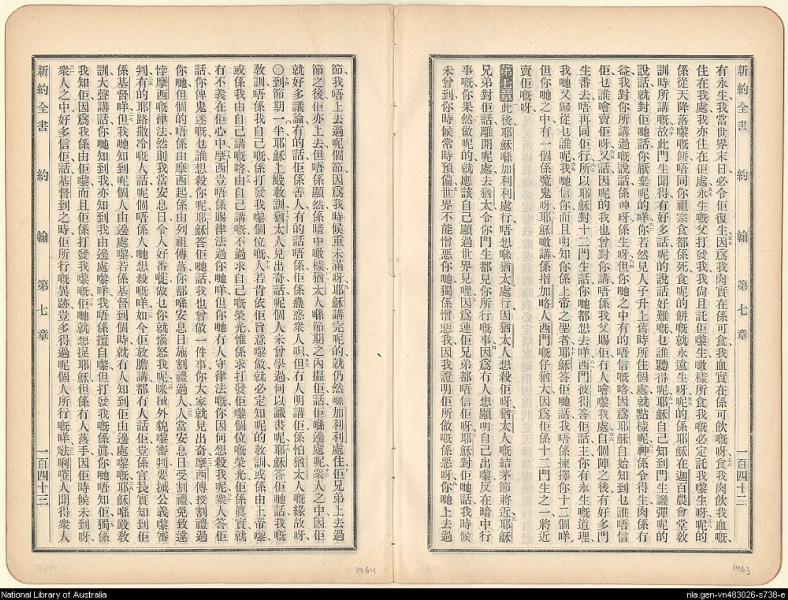 新約全書 約翰 第七章 一百四十三
有永生我當世界末日必令佢復生因爲我肉實在係可食我血實在係可飲嘅呀食我肉飲我血嘅
住在我處我亦住在佢處永生嘅父打發我我尚且託佢嚟生噉樣所食我嘅必定託我嚟生呀呢的
係從天降落嚟嘅餅唔同你祖宗食都係死食呢的餅嘅就永遠生呀呢的係耶穌在迦百農會堂教
訓時所講嘅故此門生聞得有好多話呢的說話好難嘅乜誰聽得呢耶穌自己知到門生譏彈呢的
說話就對佢哋話你厭棄呢的咩你若然見人子升上舊時所住個處就點樣呢神係令得生肉係冇
益我對你所講過嘅說話係神呀係生呀但你哋之中有的唔信嘅咯因爲耶穌自始知到乜誰唔信
佢乜誰噲賣佢呀又話因呢的我也曾對你講唔係我父賜佢冇人噲嚟我處自個陣之後有好多門
生番去唔再同佢行所以耶穌對十二門生話你哋都想去咩西門彼得答佢話主你有永生嘅道理
我哋又歸從乜誰呢我哋信你而且明知你係上帝之聖者耶穌答佢哋話我唔係揀擇你十二個咩
但你哋之中有一個係魔鬼呀耶穌噉講係指加略人西門嘅仔猶大因爲佢係十二門生之一將近
賣佢嘅呀
第七章此後耶穌喺加利利處行唔想喺猶太處行因猶太人想殺佢呀猶太人嘅結茅節將近耶穌
兄弟對佢話離開呢處去猶太令你門生都見你所行嘅事因爲冇人想顯明自己出嚟又在暗中行
事嘅你果然做呢的就應該自己顯過世界見哩因爲連佢兄弟都唔信佢呀耶穌對佢哋話我時候
未曾到你時候常時預備世界不能憎惡你哋獨係憎惡我因我證明佢所做嘅係惡呀你哋上去過
節我唔上去過呢個節因爲我時候重未滿呀耶穌講完呢的就仍然喺加利利處住佢兄弟上去過
節之後佢亦上去但唔係顯然係暗中噉樣猶太人喺節期之內搵佢話佢喺邊處呢衆人之中因佢
就好多議論有的話佢係善人有的話唔係佢係蠱惑衆人呮但冇人明講佢係怕猶太人嘅緣故呀
○到節期一半耶穌上殿教訓猶太人見出奇話呢個人未曾學過何以識書呢耶穌答佢哋話我嘅
教訓唔係我自己嘅係打發我嚟個位嘅人若肯依佢旨意嚟做就必定知呢的教訓或係由上帝嚟
或係我由自己講嘅咯由自己講嘅不過求自己嘅榮光惟係求打發佢嚟個位嘅榮光佢係眞實就
冇不義在佢心中摩西豈唔係賜律法過你哋咩但你哋冇人守律法嘅你因何想殺我呢衆人答佢
話你俾鬼迷嘅乜誰想殺你呢耶穌答佢哋話我也曾做一件事你大家就見出奇摩西傳授割禮過
你哋但個的唔係由摩西起係由列祖傳落你都喺安息日施割禮過人人當安息日受割禮免致違
悖摩西嘅律法然則我當安息日令人好番嚹做乜你就惱怒我呢唔好掝外貌嚟審判要掝公義嚟審
判有的耶路撒冷嘅人話呢個唔係人哋想殺嘅咩如今佢放膽講都冇人話佢豈係官長實知到佢
係基督咩但我哋知到呢個人由邊處嚟若係基督到個時就冇人知到佢由邊處嚟嘅耶穌喺殿教
訓大聲講話你哋知到我亦知到我由邊處嚟咩我唔係擅自嚟但打發我嘅係眞你哋唔知佢獨係
我知佢因爲我係由佢嚟而且佢係打發我嚟嘅佢哋就想捉耶穌但係冇人落手因佢時候未到呀
衆人之中好多信佢話基督到之時佢所行嘅異跡豈多得過呢個人所行嘅咩𠵽唎嚹人聞得衆人
新約全書 約翰 第七章 一百四十三
1464
1463
National Library of Australia
nla.gen-vn483026-s738-e